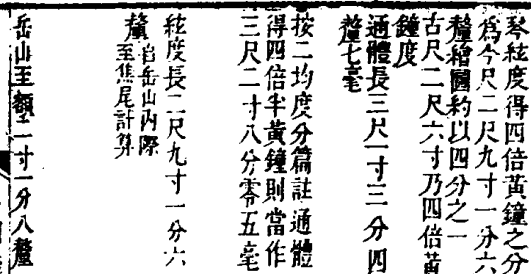 琴絃度得四倍黃鐘之分
爲今尺二尺九寸一分六
釐繪圖約以四分之一
古尺二尺六寸乃四倍黃
鐘度
通體長三尺一寸三分四
釐七毫
按二均度分篇註通體
得四倍半黃鐘則當作
三尺二寸八分零五毫
絃度長二尺九寸一分六
釐自岳山內際
至焦尾計算
岳山至額二寸一分八釐